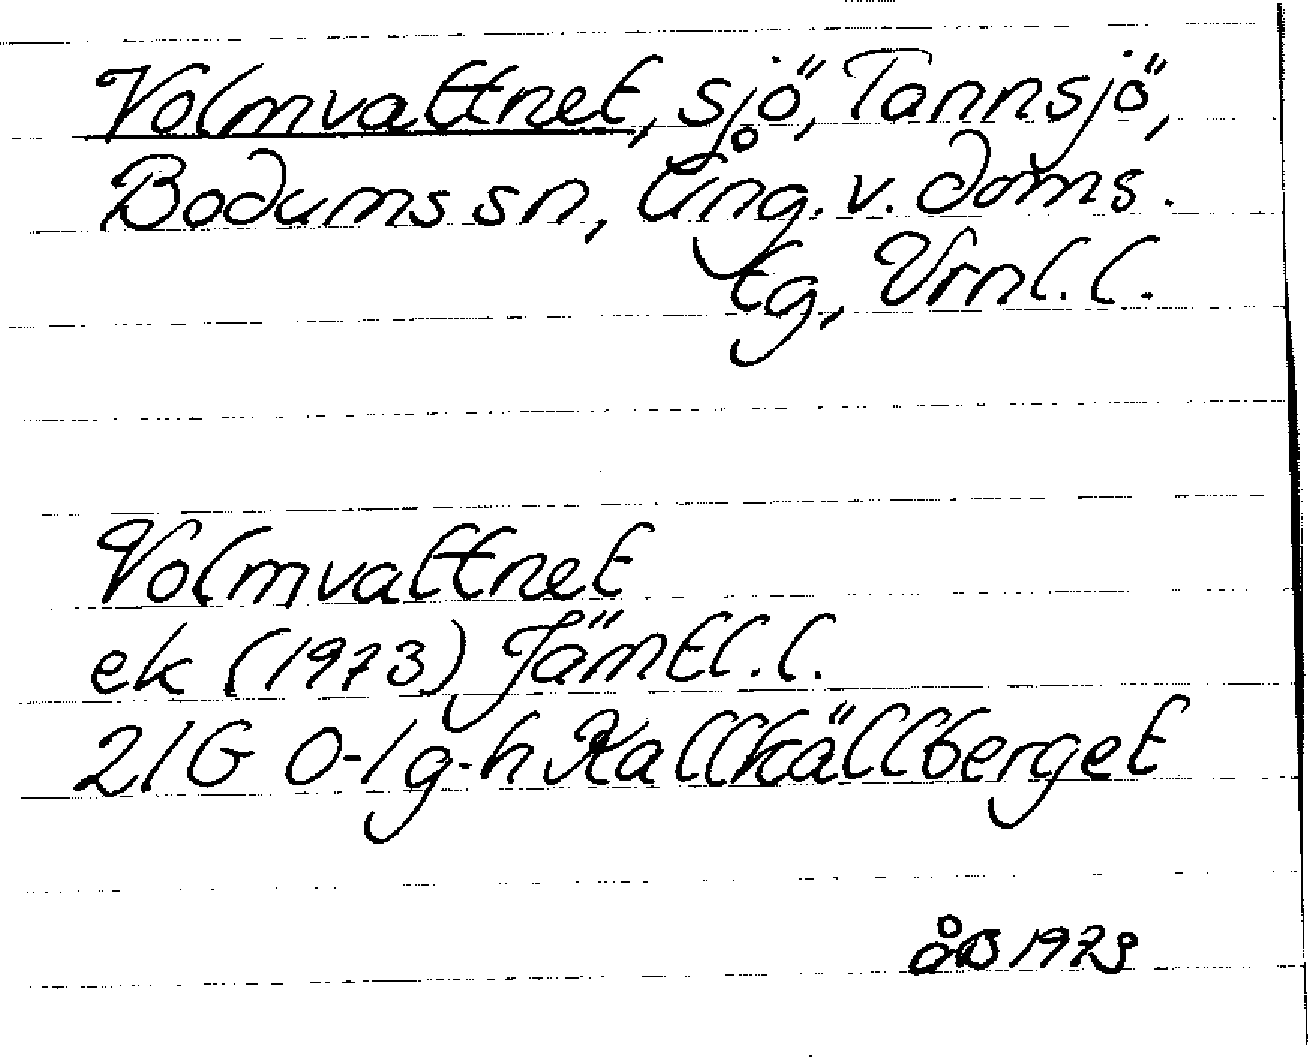 Volmvattnet, sjö, Tannsjö,
Bodums sn, Ång. v. doms.
tg, Vrnl. l.
Volmvattnet
ek (1973) Jämtl. l.
21G 0-1 g-h Kallkällberget
åB 1979